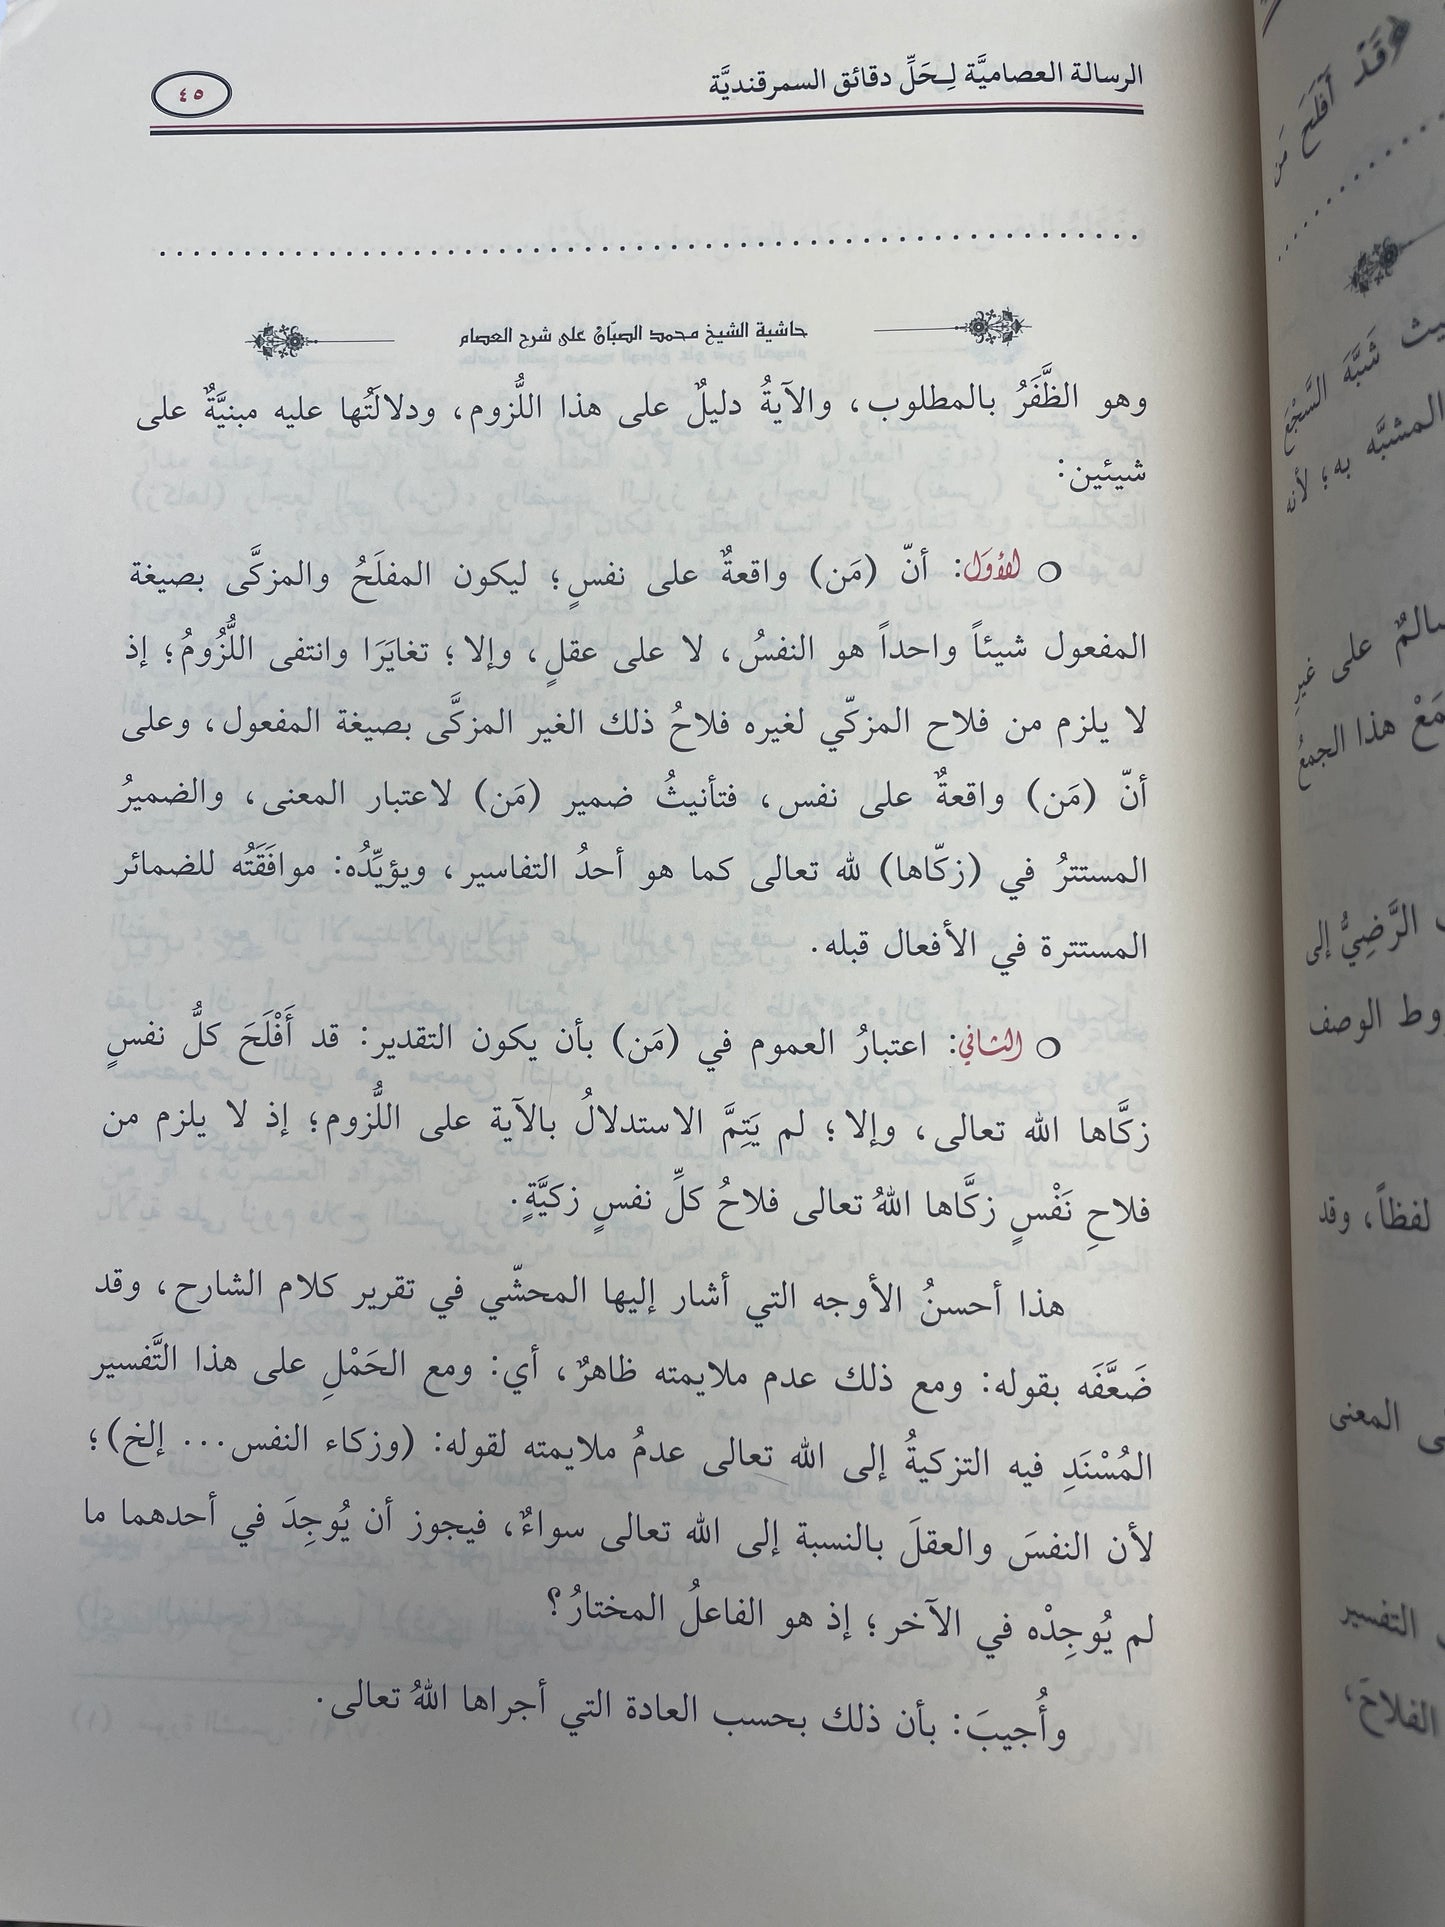 الرسالة العصاميَّة لِـحَلِّ دقائق السمرقنديَّة
٤٥
حاشية الشيخ محمد الصبّان على شرح العصام
وهو الظَّفَرُ بالمطلوب، والآيةُ دليلٌ على هذا اللُّزوم، ودلالَتُها عليه مبنيَّةٌ على
شيئين:
○ الأوّل: أنّ (مَن) واقعةٌ على نفسٍ؛ ليكون المفلَحُ والمزكَّى بصيغة
المفعول شيئاً واحداً هو النفسُ، لا على عقلٍ، وإلا؛ تغايَرَا وانتفى اللُّزُومُ؛ إذ
لا يلزم من فلاح المزكّي لغيره فلاحُ ذلك الغير المزكَّى بصيغة المفعول، وعلى
أنّ (مَن) واقعةٌ على نفس، فتأنيثُ ضمير (مَن) لاعتبار المعنى، والضميرُ
المستترُ في (زكّاها) لله تعالى كما هو أحدُ التفاسير، ويؤيِّدُه: موافَقَتُه للضمائر
المستترة في الأفعال قبله.
○ الثاني: اعتبارُ العموم في (مَن) بأن يكون التقدير: قد أَفْلَحَ كلُّ نفسٍ
زكَّاها الله تعالى، وإلا؛ لم يَتِمَّ الاستدلالُ بالآية على اللُّزوم؛ إذ لا يلزم من
فلاحِ نَفْسٍ زكَّاها اللهُ تعالى فلاحُ كلِّ نفسٍ زكيَّةٍ.
هذا أحسنُ الأوجه التي أشار إليها المحشّي في تقرير كلام الشارح، وقد
ضَعَّفَه بقوله: ومع ذلك عدم ملايمته ظاهرٌ، أي: ومع الحَمْلِ على هذا التَّفسير
المُسْنَدِ فيه التزكيةُ إلى الله تعالى عدمُ ملايمته لقوله: (وزكاء النفس... إلخ)؛
لأن النفسَ والعقلَ بالنسبة إلى الله تعالى سواءٌ، فيجوز أن يُوجِدَ في أحدهما ما
لم يُوجِدْه في الآخر؛ إذ هو الفاعلُ المختارُ؟
وأُجيبَ: بأن ذلك بحسب العادة التي أجراها اللهُ تعالى.
قَدْ أَفْلَحَ مَن
شَبَّهَ السَّجْعَ
المشبَّه به؛ لأنه
على غيرِ
هذا الجمعُ
الرَّضِيُّ إلى
الوصف
لفظاً، وقد
المعنى
التفسير
الفلاحَ،